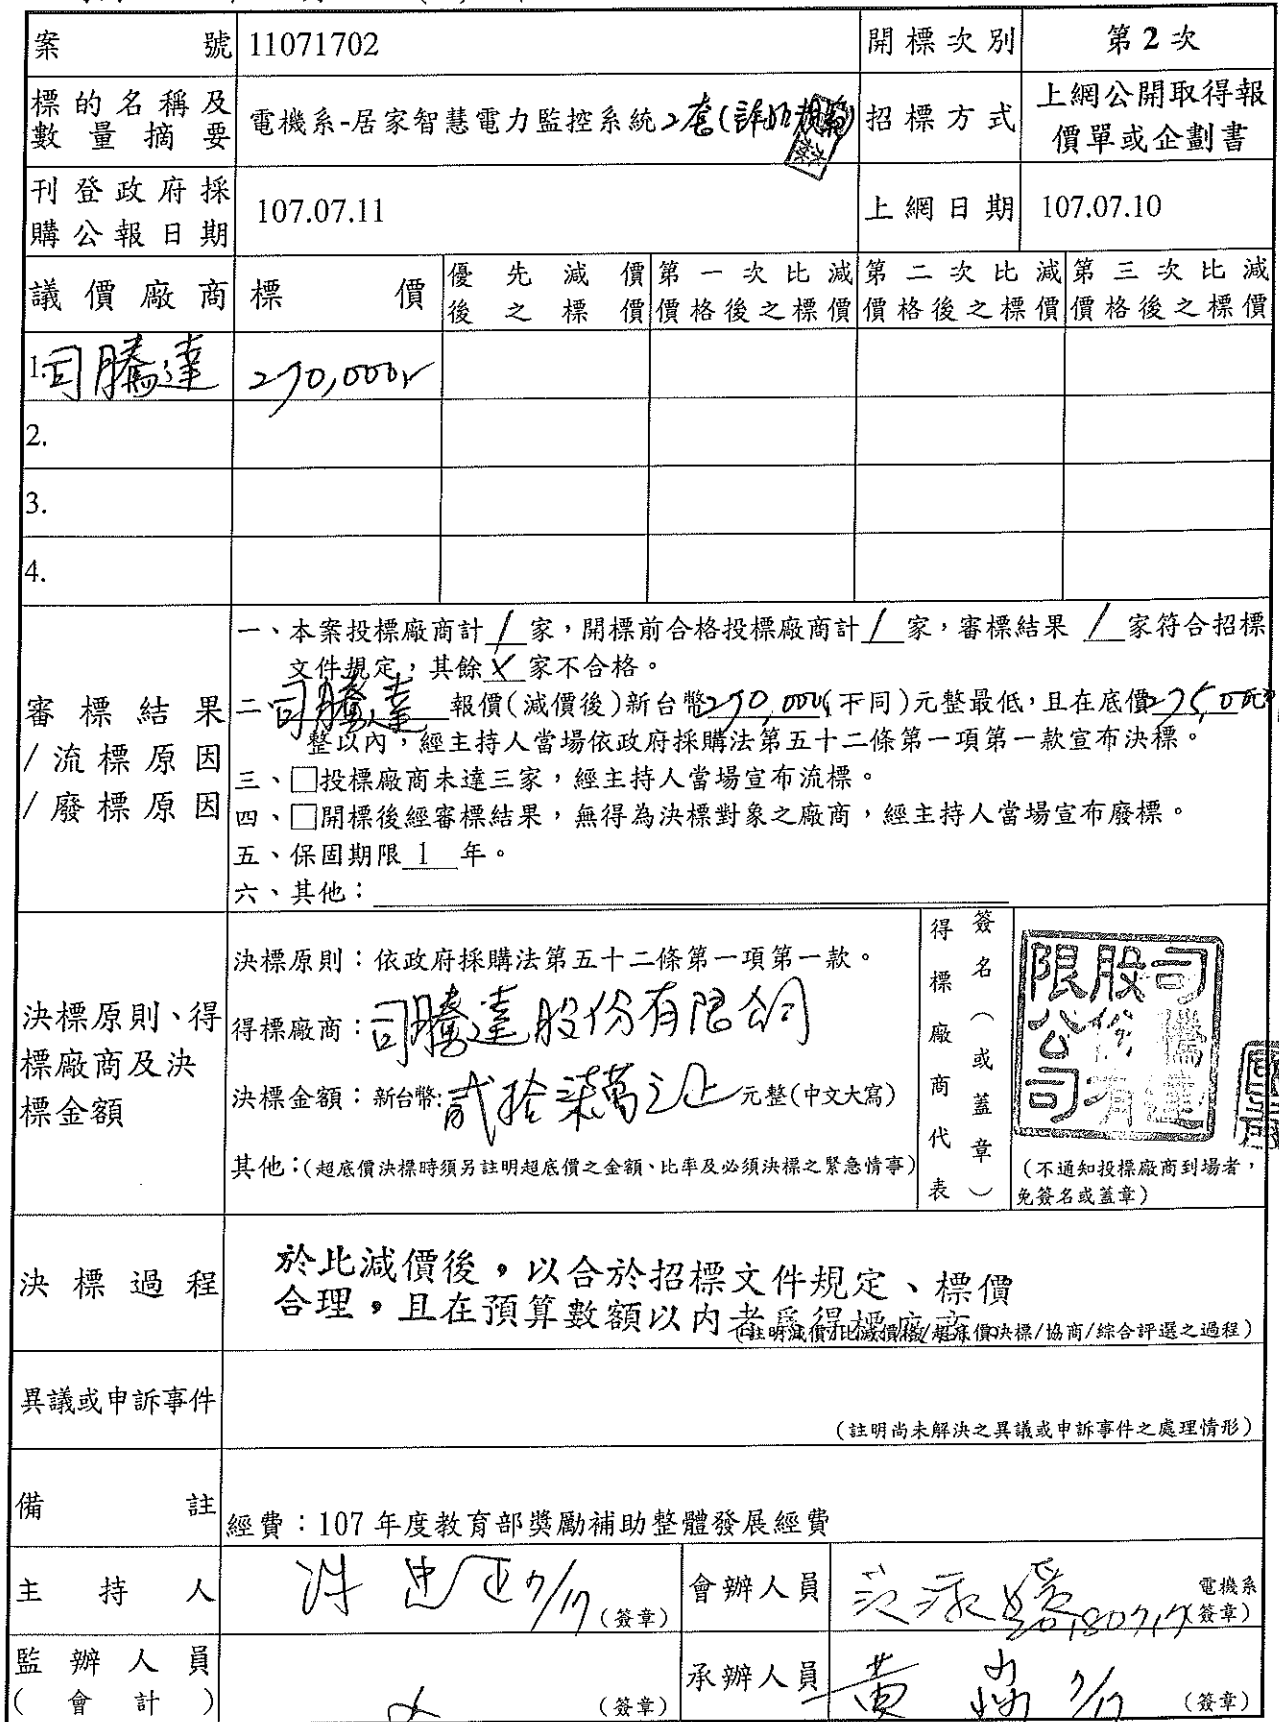 案號 11071702 開標次別 第2次
標的名稱及數量摘要 電機系-居家智慧電力監控系統2套(詳如規範) 招標方式 上網公開取得報價單或企劃書
刊登政府採購公報日期 107.07.11 上網日期 107.07.10
議價廠商 標價 優先減價後之標價 第一次比減價格後之標價 第二次比減價格後之標價 第三次比減價格後之標價
1.司騰達 270,000
2.
3.
4.
審標結果/流標原因/廢標原因
一、本案投標廠商計 1 家,開標前合格投標廠商計 1 家,審標結果 1 家符合招標
文件規定,其餘 X 家不合格。
二 司騰達 報價(減價後)新台幣270,000(下同)元整最低,且在底價275,000元
整以內,經主持人當場依政府採購法第五十二條第一項第一款宣布決標。
三、□投標廠商未達三家,經主持人當場宣布流標。
四、□開標後經審標結果,無得為決標對象之廠商,經主持人當場宣布廢標。
五、保固期限 1 年。
六、其他:
決標原則、得標廠商及決標金額
決標原則:依政府採購法第五十二條第一項第一款。
得標廠商:司騰達股份有限公司
決標金額:新台幣:貳拾柒萬元止元整(中文大寫)
其他:(超底價決標時須另註明超底價之金額、比率及必須決標之緊急情事)
得標廠商代表
簽名(或蓋章)
司騰達股份有限公司
(不通知投標廠商到場者,
免簽名或蓋章)
決標過程
於比減價後,以合於招標文件規定、標價
合理,且在預算數額以內者為得標廠商
(註明減價/比減價格/超底價決標/協商/綜合評選之過程)
異議或申訴事件
(註明尚未解決之異議或申訴事件之處理情形)
備註
經費:107 年度教育部獎勵補助整體發展經費
主持人 7/17 (簽章) 會辦人員 電機系 (簽章)
監辦人員(會計) (簽章) 承辦人員 黃 7/17 (簽章)